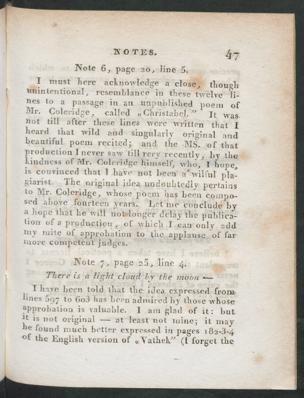 NOTES. 47
Note 6, page 20, line 5.
I must here acknowledge a close, though
unintentional, resemblance in these twelve li-
nes to a passage in an unpublished poem of
Mr. Coleridge, called „Christabel." It was
not till after these lines were written that I
heard that wild and singularly original and
beautiful poem recited; and the MS. of that
production I never saw till very recently, by the
kindness of Mr. Coleridge himself, who, I hope,
is convinced that I have not been a wilful pla-
giarist. The original idea undoubtedly pertains
to Mr. Coleridge, whose poem has been compo-
sed above fourteen years. Let me conclude by
a hope that he will not longer delay the publica-
tion of a production, of which I can only add
my mite of approbation to the applause of far
more competent judges.
Note 7, page 23, line 4.
There is a light cloud by the moon —
I have been told that the idea expressed from
lines 597 to 603 has been admired by those whose
approbation is valuable. I am glad of it: but
it is not original — at least not mine; it may
be found much better expressed in pages 182-3-4
of the English version of „Vathek" (I forget the